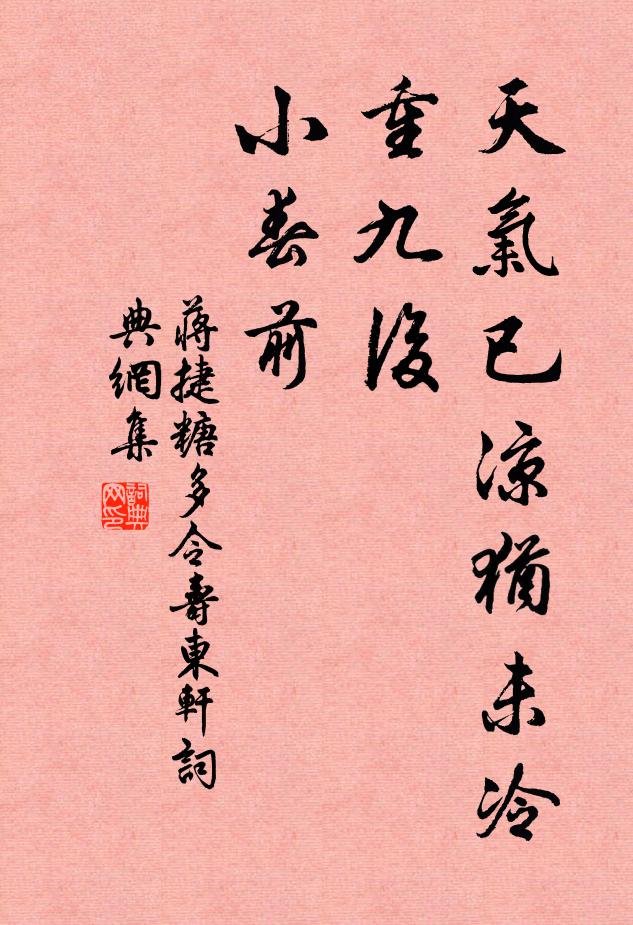 天氣已涼猶未冷
重九後
小春前
蔣捷糖多令壽東軒詞
典網集
詞典網印